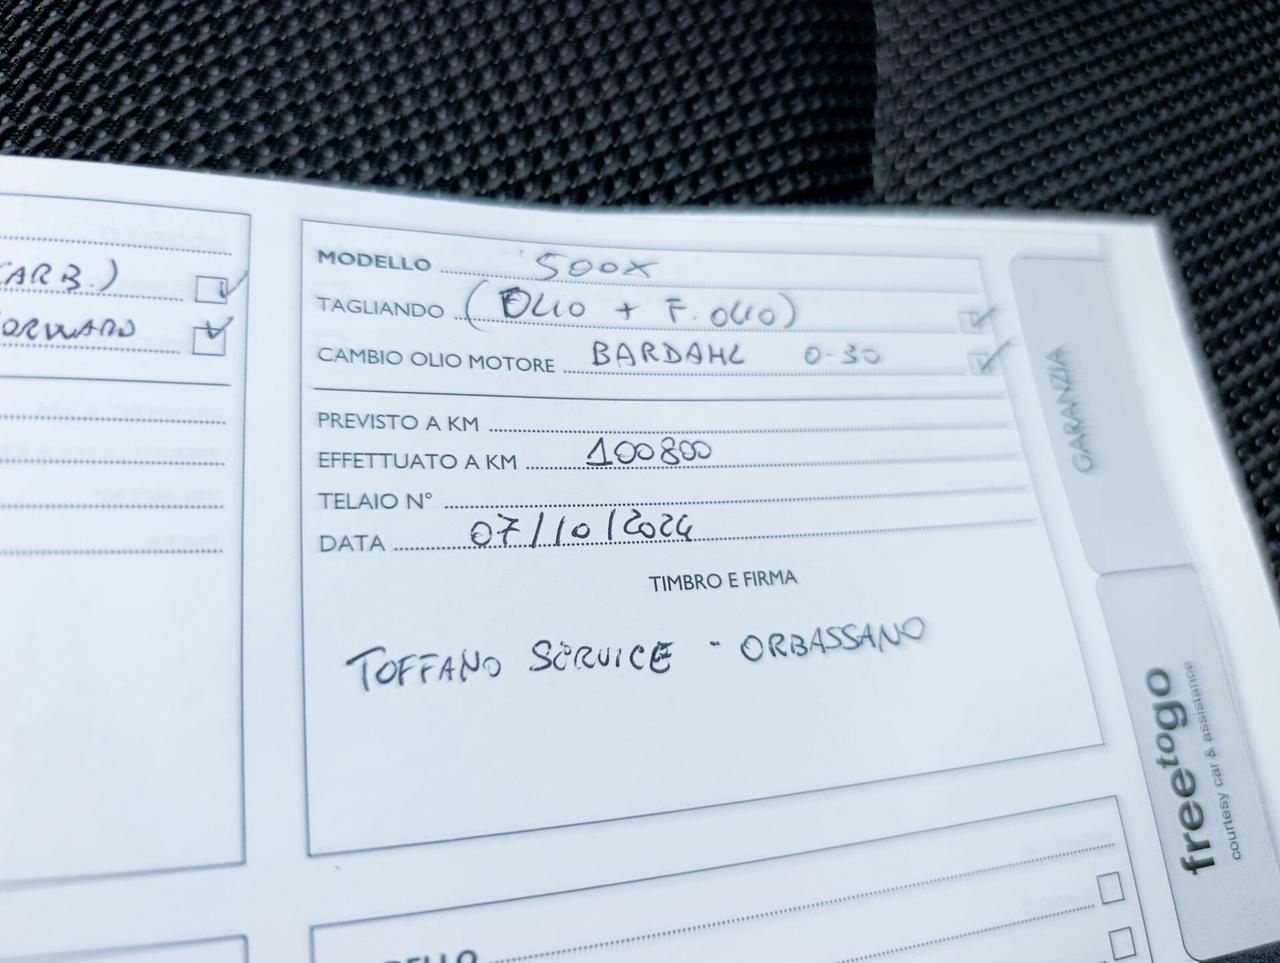 ARB.)
ORWARD
MODELLO 500X
TAGLIANDO (OLIO + F. OLIO)
CAMBIO OLIO MOTORE BARDAHL 0-30
PREVISTO A KM
EFFETTUATO A KM 100800
TELAIO N°
DATA 07/10/2024
TIMBRO E FIRMA
TOFFANO SERVICE - ORBASSANO
GARANZIA
freetogo
courtesy car & assistance
DELLO